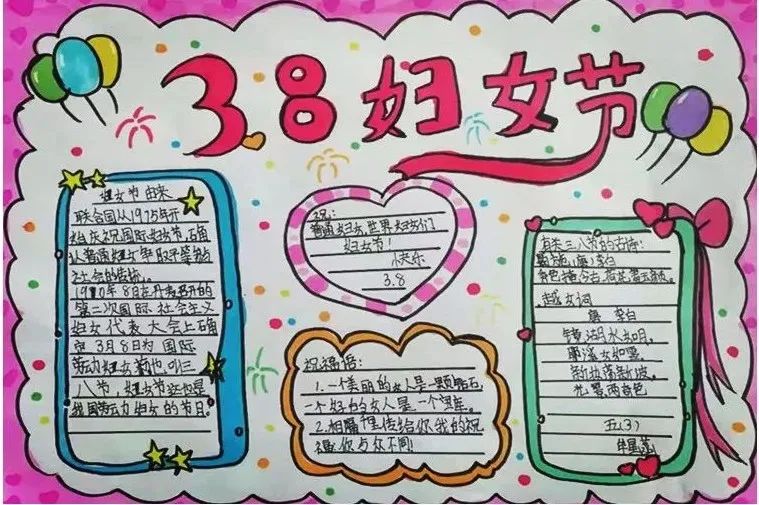 3.8妇女节
妇女节由来
联合国从1975年开
始庆祝国际妇女节,确
认普通妇女争取平等的
社会的传统。
1910年8月在丹麦召开的
第二次国际社会主义
妇女代表大会上确
定3月8日为国际
劳动妇女节也叫三
八节,妇女节这也是
我国劳动妇女的节日。
祝:
普通妇女,世界妇女们
妇女节!
快乐
3.8
祝福语:
1.一个美丽的女人是一颗钻石,
一个好的女人是一个宝库。
2.相隔
传给你我的祝
福,你与众不同!
有关三八节的古诗:
越女词
李白
镜湖水如月,
耶溪女如雪。
新妆荡新波,
光景两奇色
五(3)